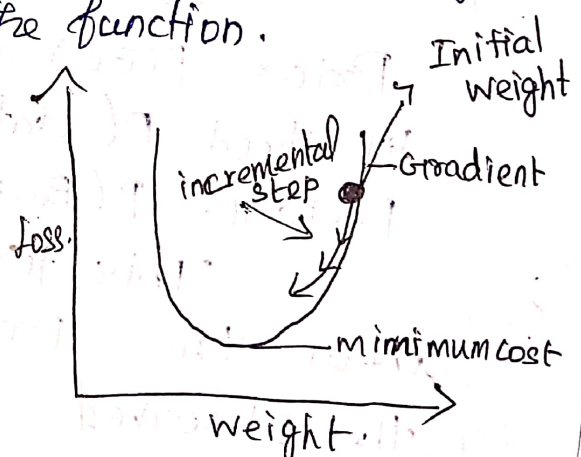 he function.
Initial
Weight
incremental
step
Gradient
Loss.
mimimum cost
Weight.